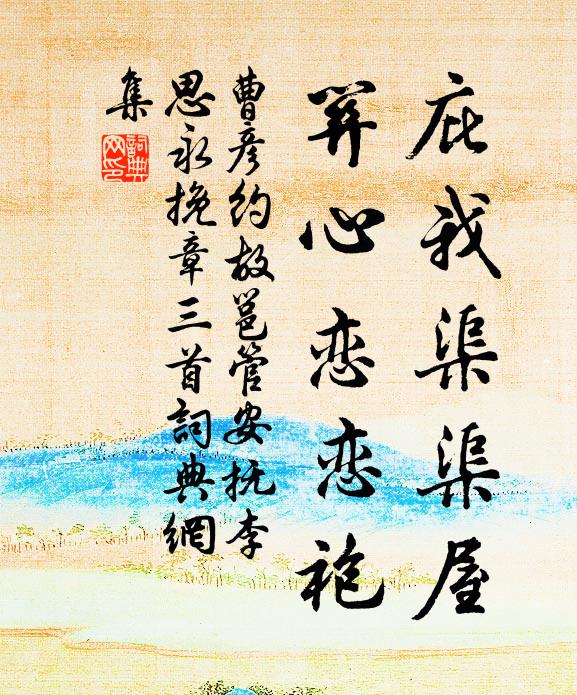 庇我渠渠屋
心恋恋袍
曹彦约故邕管安抚李
思永挽章三首詞典網
集
詞典
网印